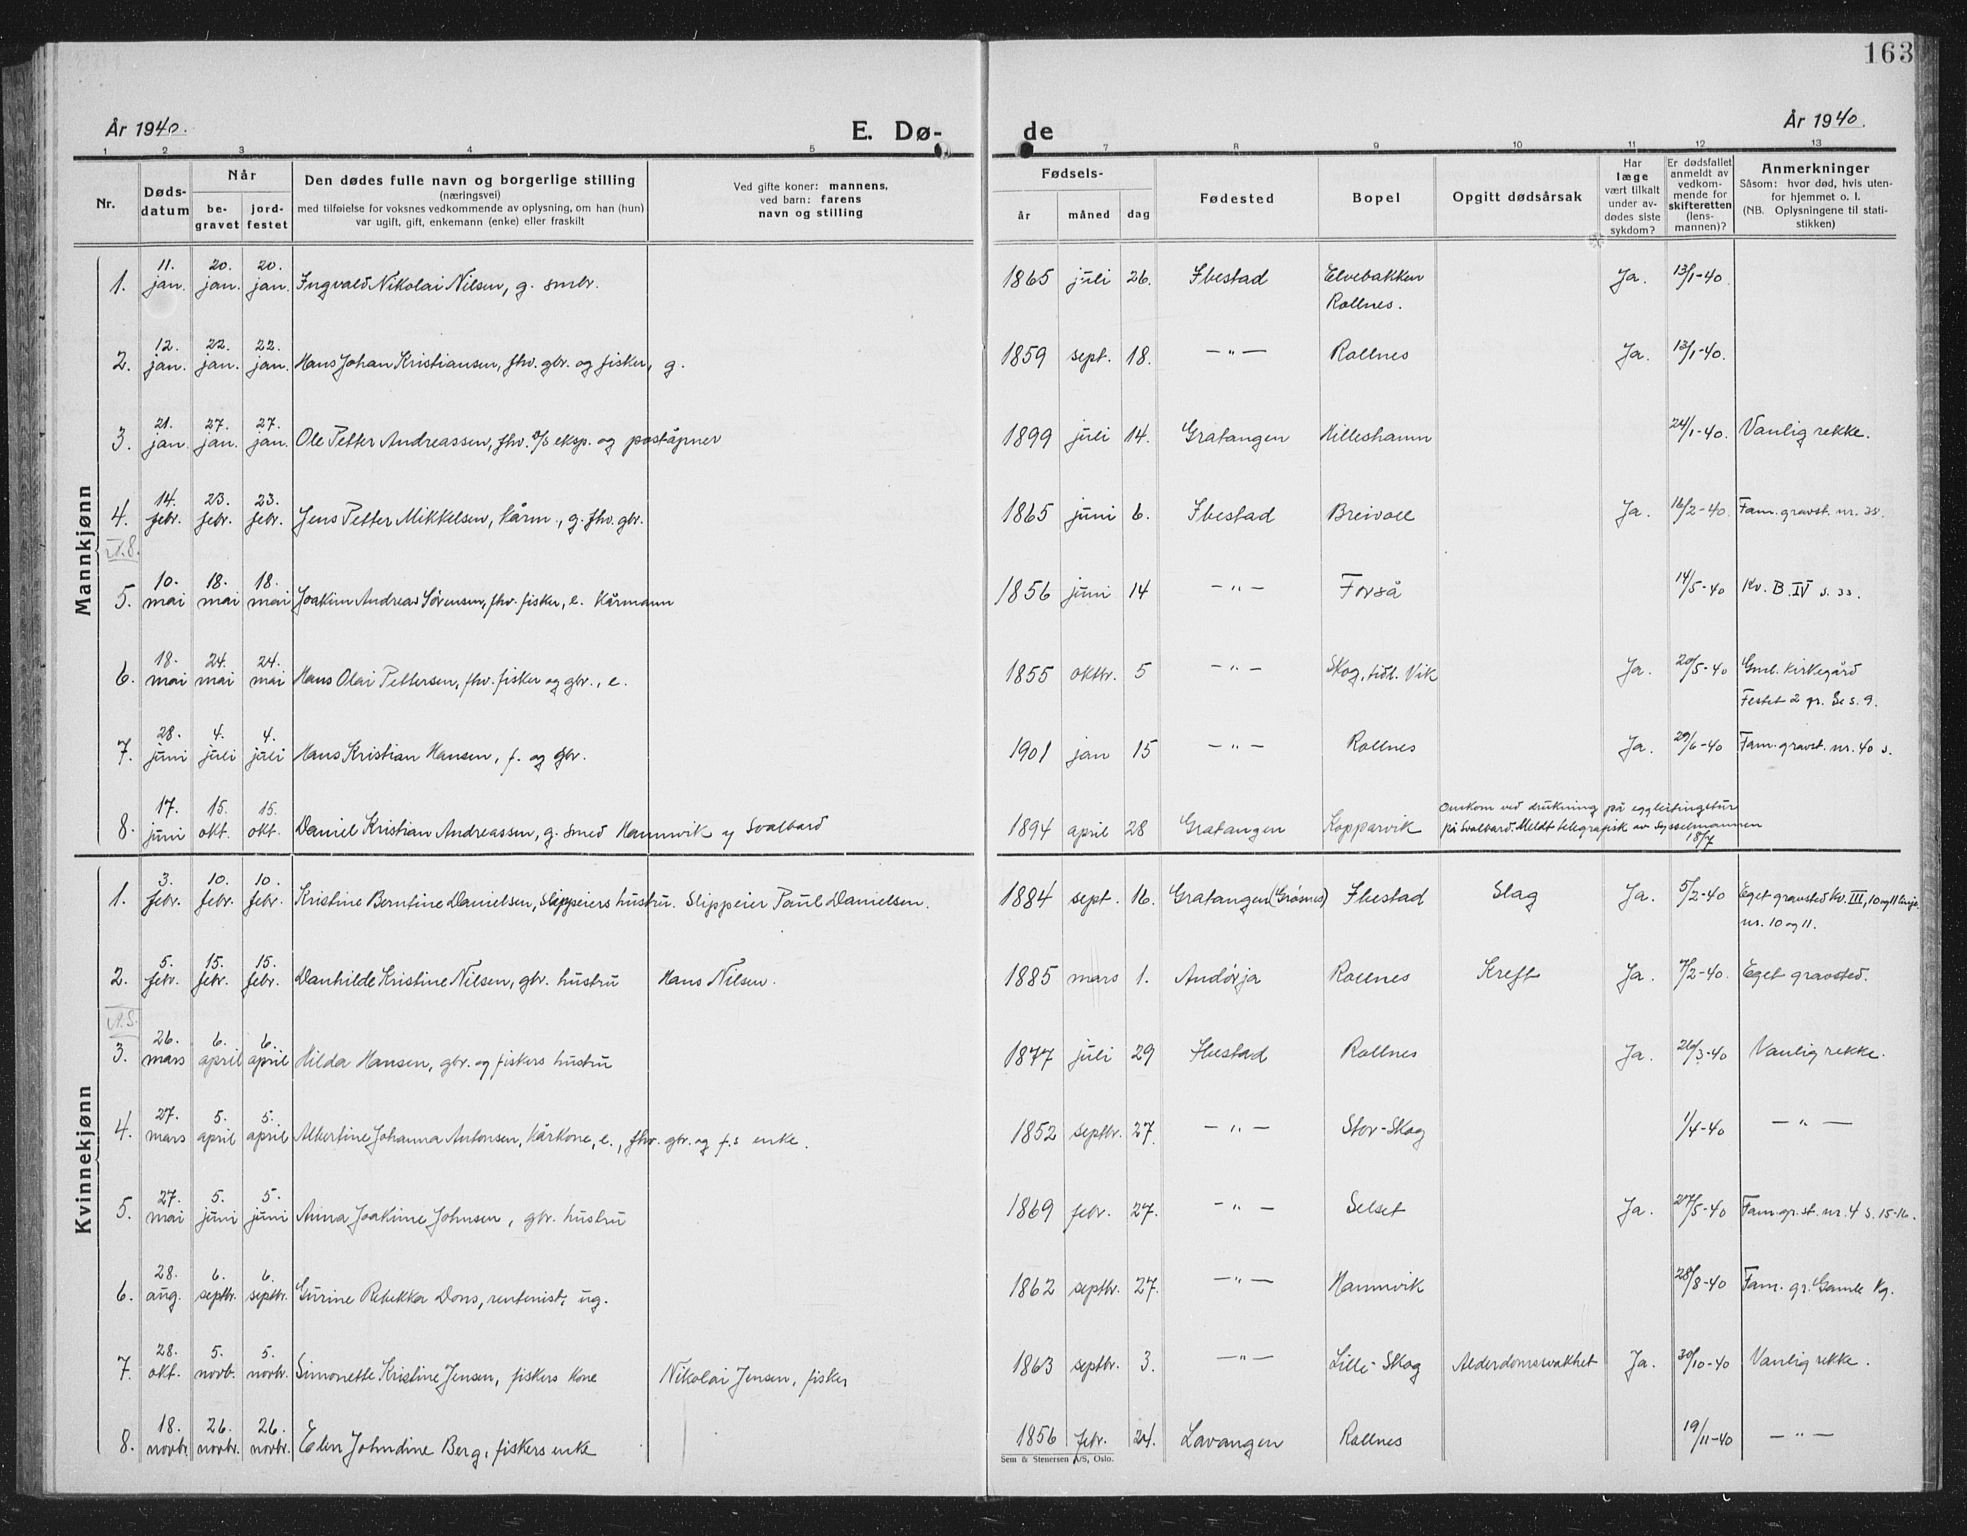 163
År 1940.
E. Dø-
de
År 1940.
1 2 3 4 5 7 8 9 10 11 12 13
Nr.
Døds-
datum
Når
be-
gravet
jord-
festet
Den dødes fulle navn og borgerlige stilling
(næringsvei)
med tilføielse for voksnes vedkommende av oplysning, om han (hun)
var ugift, gift, enkemann (enke) eller fraskilt
Ved gifte koner: mannens,
ved barn: farens
navn og stilling
Fødsels-
år måned dag
Fødested
Bopel
Opgitt dødsårsak
Har
læge
vært tilkalt
under av-
dødes siste
sykdom?
Er dødsfallet
anmeldt av
vedkom-
mende for
skifteretten
(lens-
mannen)?
Anmerkninger
Såsom: hvor død, hvis uten-
for hjemmet o. l.
(NB. Oplysningene til stati-
stikken)
Mannkjønn
1. 11. jan. 20. jan. 20. jan. Ingvald Nikolai Nilsen, g. smbr. 1865 juli 26. Ibestad Elvebakken Ja. 13/1-40.
Rollnes.
2. 12. jan. 22. jan. 22. jan. Hans Johan Kristiansen, fhv. gbr. og fisker, g. 1859 sept. 18. —"— Rollnes Ja. 13/1-40.
3. 21. jan. 27. jan. 27. jan. Ole Petter Andreassen, fhv. d/s eksp. og poståpner 1899 juli 14. Gratangen Hilleshamn 24/1-40. Vanlig rekke.
4. 14. febr. 23. febr. 23. febr. Jens Petter Mikkelsen, kårm., g. fhv. gbr. 1865 juni 6. Ibestad Breivoll Ja. 16/2-40. Fam. gravst. nr.
5. 10. mai 18. mai 18. mai Joakim Andreas Sørensen, fhv. fisker, e. kårmann 1856 juni 14 —"— Forså 14/5-40 Kv. B. IV s. 33.
6. 18. mai 24. mai 24. mai Hans Olai Pettersen, fhv. fisker og gbr., e. 1855 oktbr. 5 —"— Skog, tidl. Vik Ja. 20/5-40 Gml. kirkegård
Festet 2 gr. Se s. 9.
7. 28. juni 4. juli 4. juli Hans Kristian Hansen, f. og gbr. 1901 jan 15 —"— Rollnes Ja. 29/6-40 Fam. gravst. nr. 40 s.
8. 17. juni 15. okt. 15. okt. Daniel Kristian Andreassen, g. smed Hamnvik y Svalbard 1894 april 28 Gratangen Kopparvik Omkom ved drukning på eggleitingstur
på Svalbard. Meldt telegrafisk av Sysselmannen
18/7
Kvinnekjønn
1. 3. febr. 10. febr. 10. febr. Kristine Berntine Danielsen, slippeiers hustru. Slippeier Paul Danielsen. 1884 sept. 16. Gratangen (Grøsnes) Ibestad Slag Ja. 5/2-40 Eget gravsted Kv. III, 10 og 11 linje
nr. 10 og 11.
2. 5. febr. 15. febr. 15. febr. Danhilde Kristine Nilsen, gbr. hustru Hans Nilsen. 1885 mars 1. Andørja Rollnes Kreft Ja. 7/2-40. Eget gravsted.
3. 26. mars 6. april 6. april Hilda Hansen, gbr. og fiskers hustru 1877 juli 29 Ibestad Rollnes Ja. 26/3-40 Vanlig rekke.
4. 27. mars 5. april 5. april Albertine Johanna Antonsen, kårkone, e., fhv. gbr. og f.s enke. 1852 septbr. 27. —"— Stor-Skog 1/4-40 —"—
5. 27. mai 5. juni 5. juni Anna Joakime Johnsen, gbr. hustru 1869 febr. 27. —"— Selset Ja. 27/5-40 Fam. gr. st. nr. 4 s. 15-16.
6. 28. aug. 6. septbr. 6. septbr. Gurine Rebekka Dons, rentenist, ug. 1862 septbr. 27. —"— Hamnvik 28/8-40 Fam. gr. Gamle kg.
7. 28. okt. 5. novb. 5. novbr. Simonette Kristine Jensen, fiskers kone Nikolai Jensen, fisker 1863 septbr. 3. —"— Lille-Skog Alderdomssvakhet Ja. 30/10-40 Vanlig rekke.
8. 18. novbr. 26. novbr. 26. novbr. Elen Johndine Berg, fiskers enke 1856 febr. 24. Lavangen Rollnes 19/11-40 —"—
Sem & Stenersen A/S, Oslo.